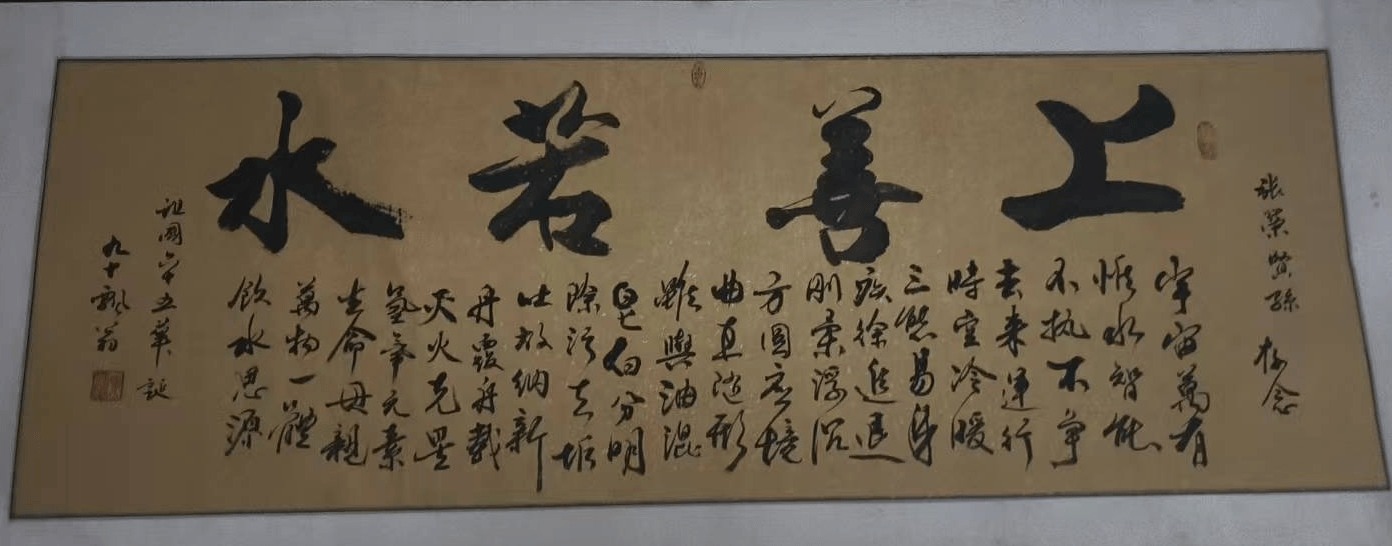 上善若水
張榮賢孫 存念
宇宙萬有
惟水智能
不執不爭
去來運行
時空冷暖
三態易身
疾徐進退
剛柔浮沉
方圓應境
曲直隨形
雖與油混
皂白分明
除污去垢
吐故納新
舟覆舟載
災火克
氫氧元素
生命母親
萬物一體
飲水思源
祖國六十五華誕
九十飄翁